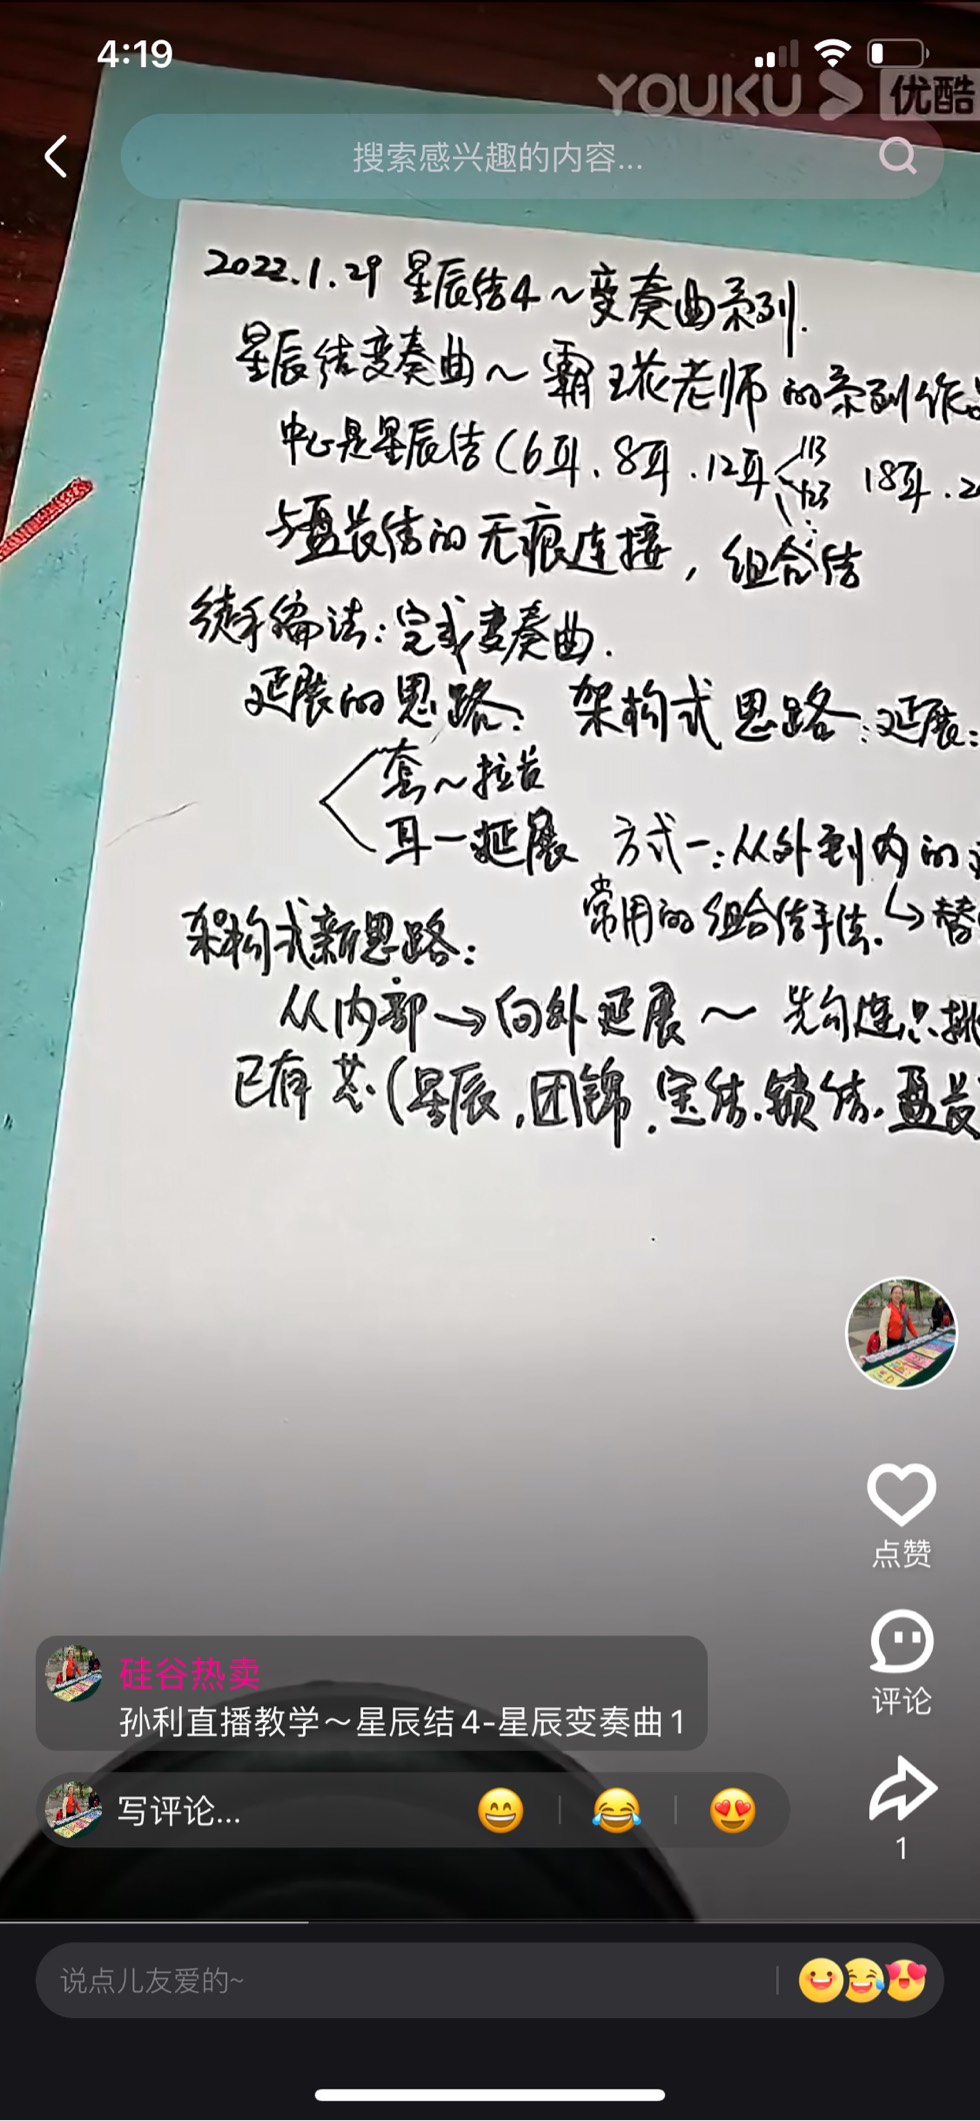 4:19
YOUKU 优酷
搜索感兴趣的内容...
2022.1.29 星辰结4～变奏曲系列.
星辰结变奏曲～霸王花老师的系列作品
中心是星辰结(6耳、8耳、12耳 113 123 18耳、2
与盘长结的无痕连接，组合结
徒手编法：完成变奏曲.
延展的思路： 架构式思路：延展：
套～拉长
耳一延展 方式一：从外到内的
常用的组合结手法. 替
架构式新思路：
从内部→向外延展～ 先勾连只挑
已有芯(星辰，团锦，宝结，锁结，盘长
点赞
评论
硅谷热卖
孙利直播教学～星辰结4-星辰变奏曲1
写评论...
1
说点儿友爱的~